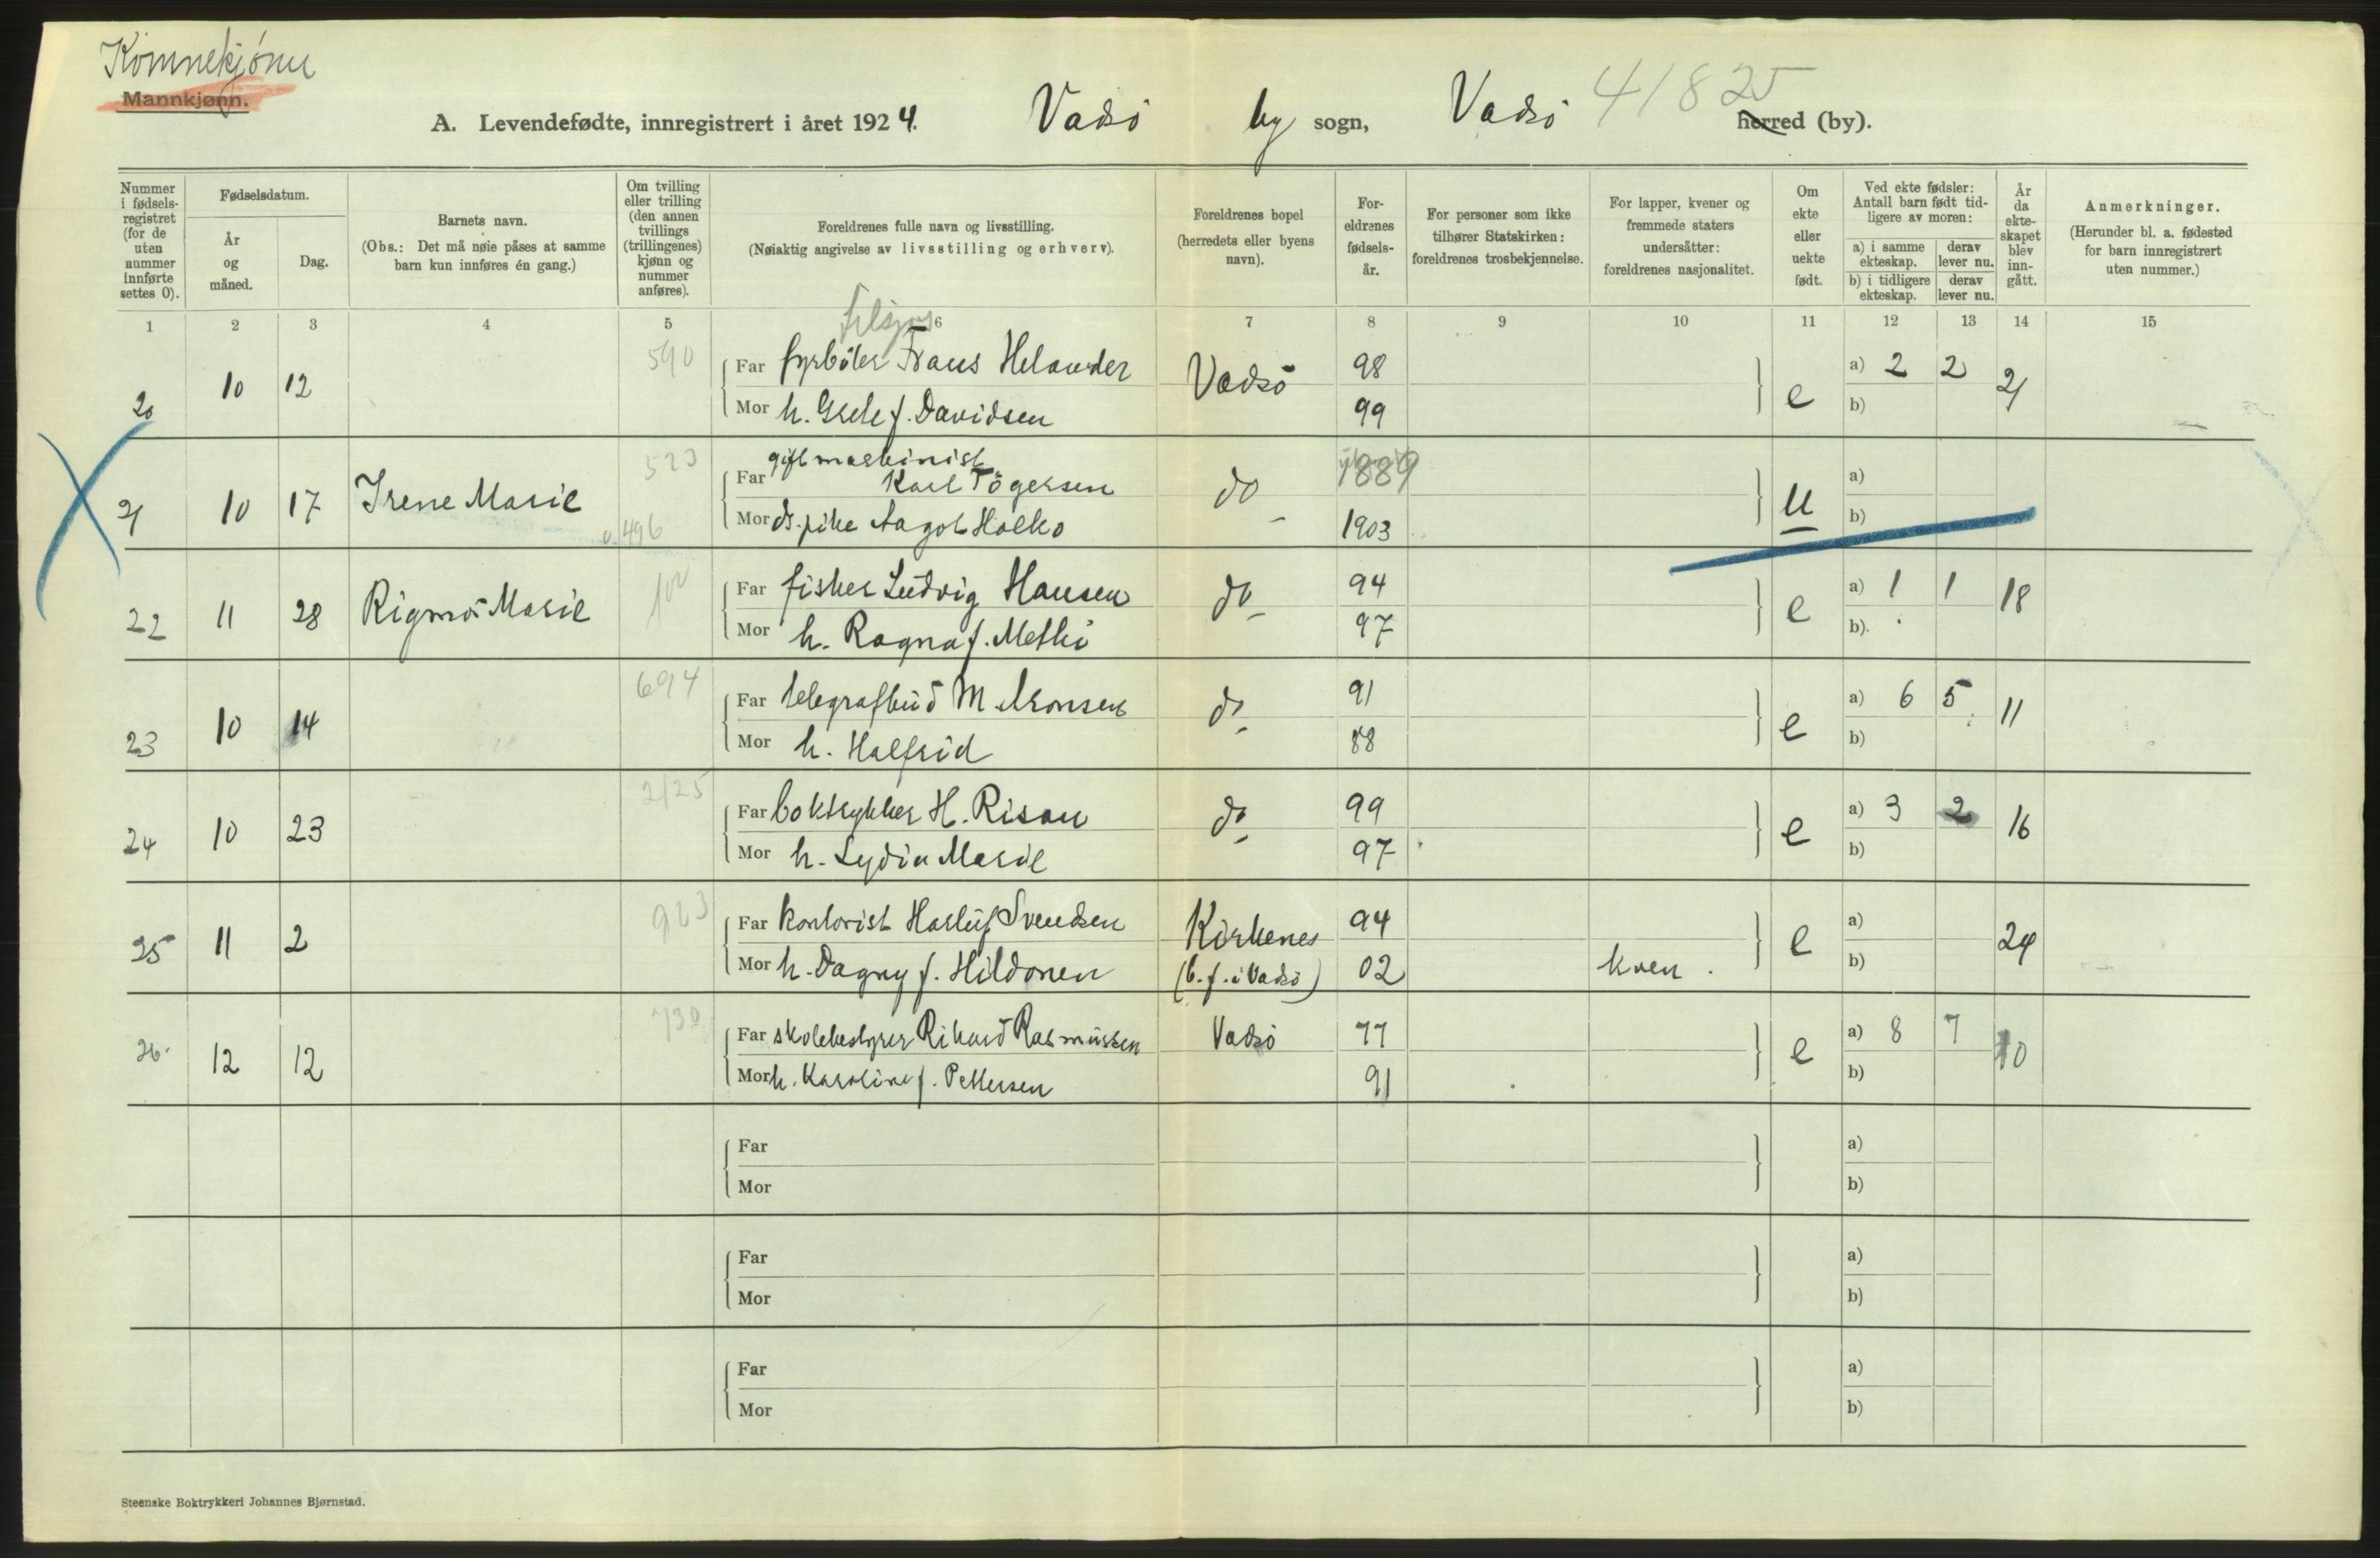 Mannkjønn.
A. Levendefødte, innregistrert i året 1924. Vadsö by sogn, Vadsö 41825 herred (by).
Nummer i fødselsregistret (for de uten nummer innførte settes 0).
Fødselsdatum.
År og måned.
Dag.
Barnets navn.
(Obs.: Det må nøie påses at samme barn kun innføres én gang.)
Om tvilling eller trilling (den annen tvillings (trillingenes) kjønn og nummer anføres).
Foreldrenes fulle navn og livsstilling.
(Nøiaktig angivelse av livsstilling og erhverv).
Foreldrenes bopel (herredets eller byens navn).
Foreldrenes fødselsår.
For personer som ikke tilhører Statskirken: foreldrenes trosbekjennelse.
For lapper, kvener og fremmede staters undersåtter: foreldrenes nasjonalitet.
Om ekte eller uekte født.
Ved ekte fødsler: Antall barn født tidligere av moren:
a) i samme ekteskap. derav lever nu.
b) i tidligere ekteskap. derav lever nu.
År da ekteskapet blev inngått.
Anmerkninger.
(Herunder bl. a. fødested for barn innregistrert uten nummer.)
1 2 3 4 5 6 7 8 9 10 11 12 13 14 15
20 10 12 590 Far fyrböter Frans Helander Vadsö 98 e a) 2 2 21
Mor h. f. Davidsen 99 b)
21 10 17 Irene Marie 523 Far gift maskinist Karl Tögersen do 1889 u a)
496 Mor ds. pike Aagot Halko 1903 b)
22 11 28 Rigmor Marie Far fisker Ludvig Hansen do 94 e a) 1 1 18
Mor h. Ragna f. Methi 97 b)
23 10 14 694 Far telegrafbud M. Aronsen do 91 e a) 6 5 11
Mor h. Halfrid 88 b)
24 10 23 2/25 Far boktrykker H. Risan do 99 e a) 3 2 16
Mor h. Lydia Marie 97 b)
25 11 2 923 Far kontorist Svendsen Kirkenes 94 e a) 24
Mor h. Dagny f. Hildonen (b. f. i Vadsö) 02 kven. b)
26. 12 12 730 Far skolebestyrer Rikard Rasmussen Vadsö 77 e a) 8 7 10
Mor h. Karoline f. Pettersen 91 b)
Far a)
Mor b)
Far a)
Mor b)
Far a)
Mor b)
Steenske Boktrykkeri Johannes Bjørnstad.